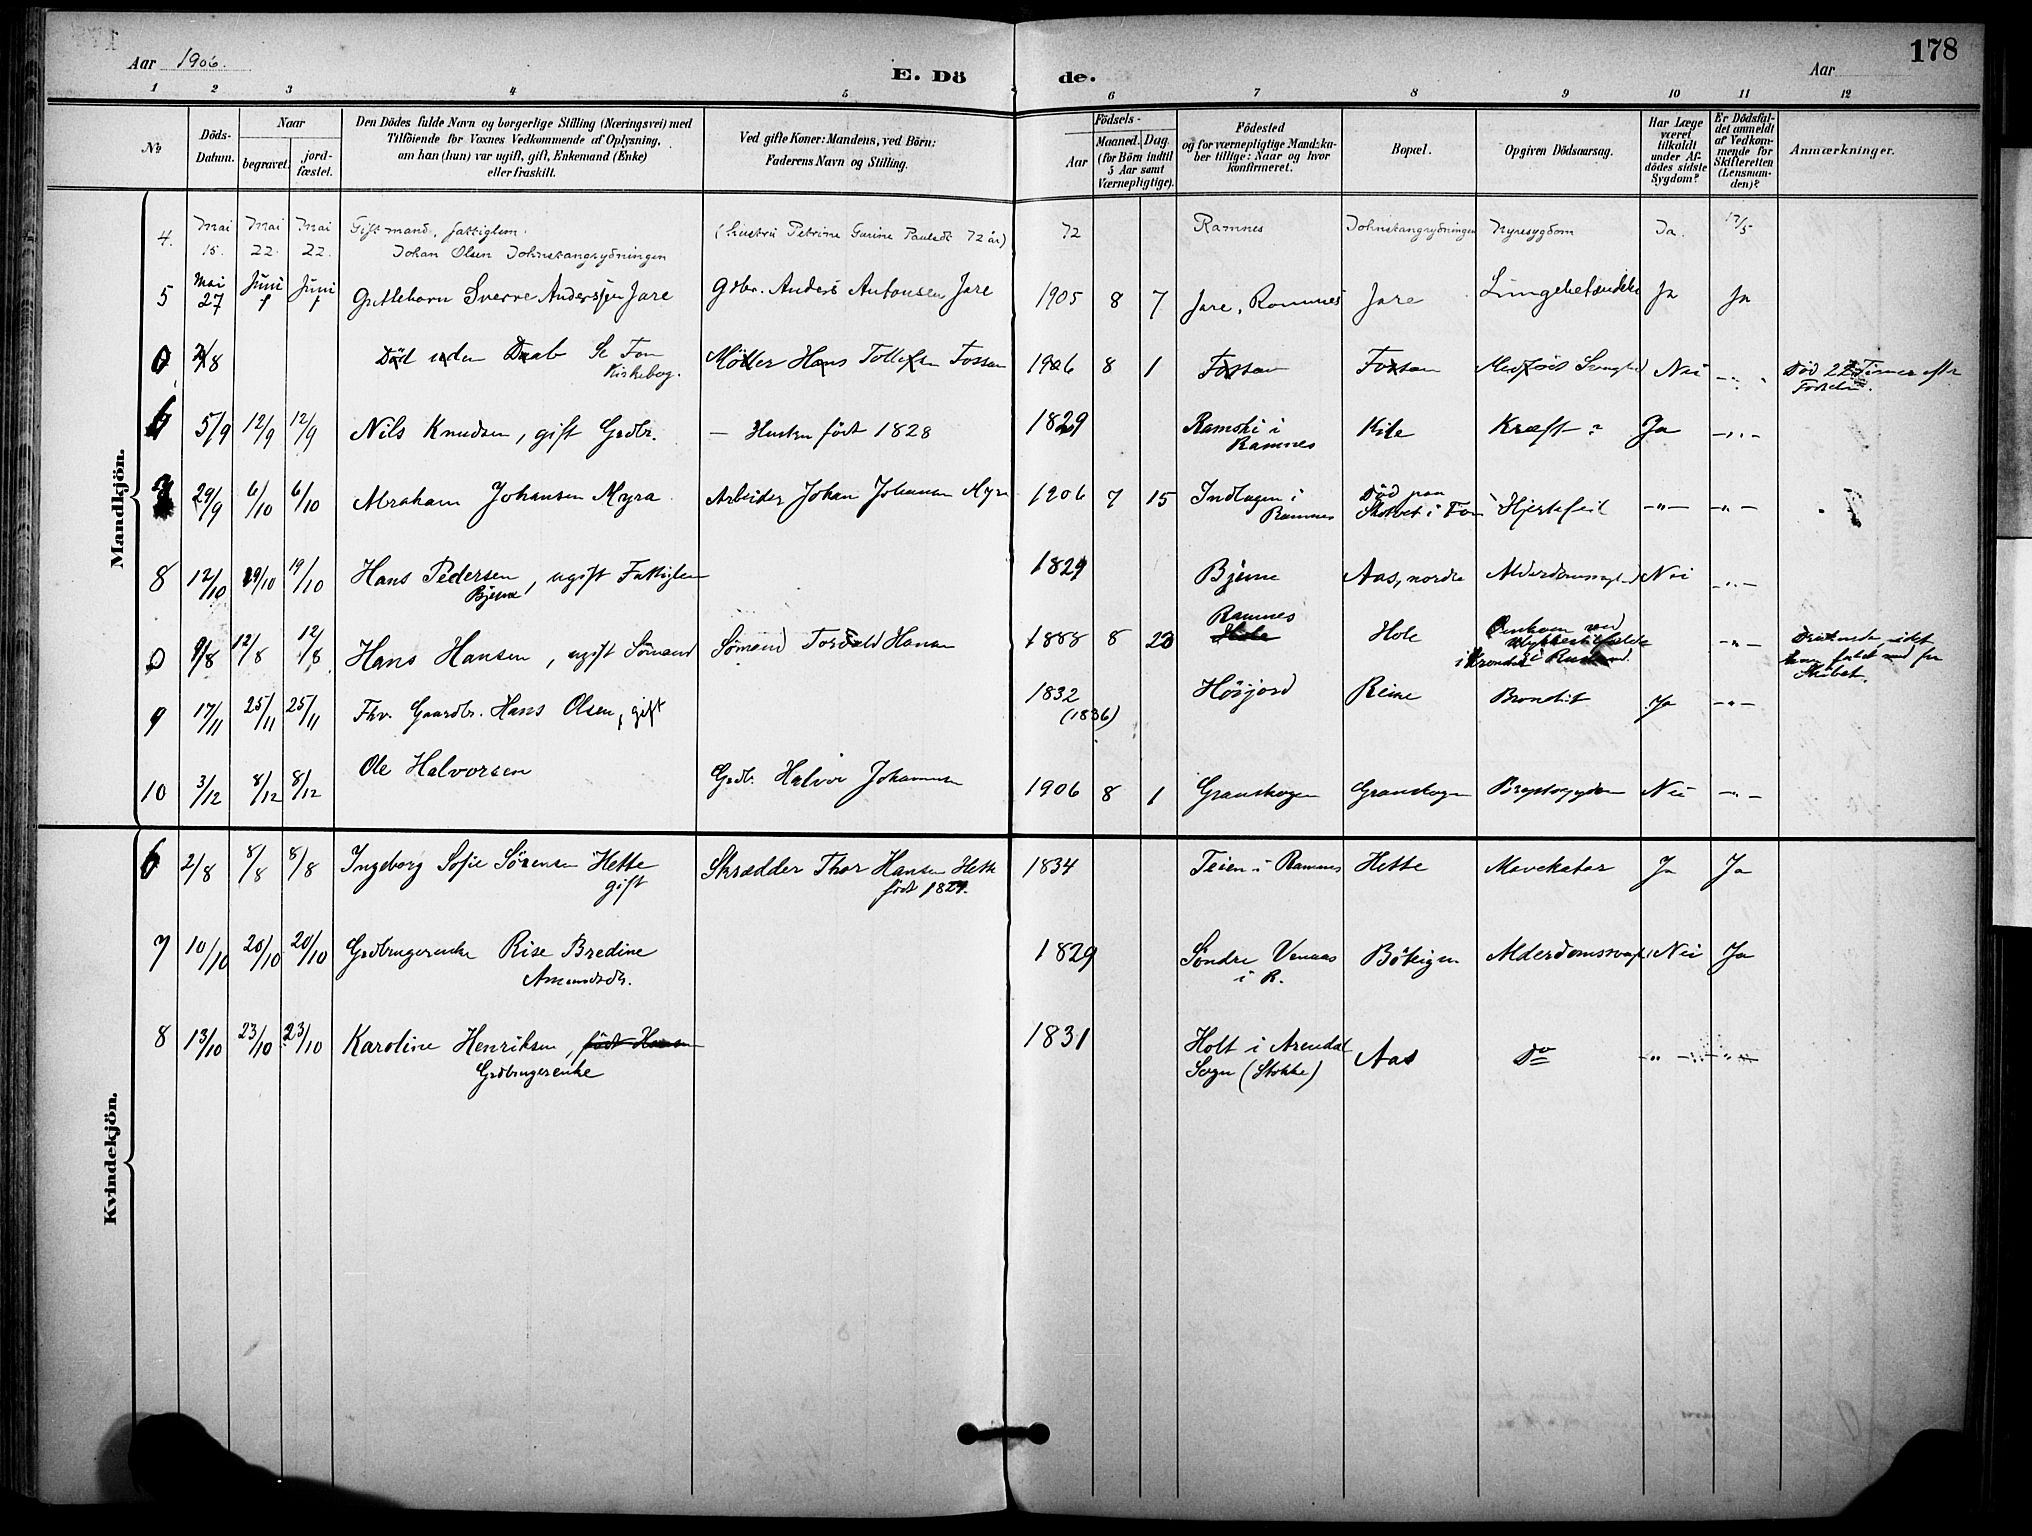 178
Aar 1906.
E. Dö de.
Aar
1 2 3 4 5 6 7 8 9 10 11 12
No
Döds-Datum.
Naar
begravet.
jord-fæstet.
Den Dödes fulde Navn og borgerlige Stilling (Næringsvei) med
Tilföiende for Voxnes Vedkommende af Oplysning,
om han (hun) var ugift, gift, Enkemand (Enke)
eller fraskilt.
Ved gifte Koner: Mandens, ved Börn:
Faderens Navn og Stilling.
Födsels-
Aar
Maaned. Dag
(for Börn indtil
5 Aar samt
Værnepligtige).
Födested
og for værnepligtige Mandska-
ber tillige: Naar og hvor
konfirmeret.
Bopæl.
Opgiven Dödsaarsag.
Har Læge
været
tilkaldt
under Af-
dödes sidste
Sygdom?
Er Dödsfal-
det anmeldt
af Vedkom-
mende for
Skifteretten
(Lensman-
den)?
Anmærkninger.
Mandkjön.
4. Mai 15. Mai 22. Mai 22. Giftmand, fattiglem. (Hustru Petrine Gurine Paulsdt 72 år) 72 Ramnes Nyresygdom Ja. 17/5
Johan Olsen
5 Mai 27 Juni 1 Juni 1 Gutteborn Sverre Anderssen Jare Gdbr. Anders Antonsen Jare 1905 8 7 Jare, Ramnes Jare Ja Ja
0 2/8 Död uden Daab Se Fon Kirkebog. Möller Hans Tollefsen Fossan 1906 8 1 Fossan Fossan Nei -"- Död 22 Timer efter Födselen.
6 5/9 12/9 12/9 Nils Knudsen, gift Grdbr. — Hustru födt 1828 1829 i Ramnes Kile Kræft ? Ja -"-
7 29/9 6/10 6/10 Abraham Johansen Myra Arbeider Johan Johansen Myra 1906 7 15 Indlagen i Ramnes Död paa i Fon Hjertefeil -"- -"-
8 12/10 19/10 19/10 Hans Pedersen Bjerne, ugift Fattiglem 1829 Bjerne Aas, nordre Alderdomssvaghed Nei -"-
0 9/8 12/8 12/8 Hans Hansen, ugift Sömand Sömand Torvald Hansen 1888 8 20 Ramnes Hole Hole Omkom ved Ulykkestilfælde i Kronstad i Rusland. -"- Druknede, idet han faldt ned fra Skibet.
9 17/11 25/11 25/11 Fhv. Gaardbr. Hans Olsen, gift 1832 (1836) Reine Bronchit Ja -"-
10 3/12 8/12 8/12 Ole Halvorsen Grdb. Halvor Johannesen 1906 8 1 Granskogen Granskogen Brystsygdom Nei -"-
Kvindekjön.
6 2/8 8/8 8/8 Ingeborg Sofie Sörensen Hette gift Skrædder Thor Hansen Hette födt 1829. 1834 Teien i Ramnes Hette Mavekatar Ja Ja
7 10/10 20/10 20/10 Grdbrugerenke Rise Bredine Amundsdtr. 1829 Söndre Venaas i R. Alderdomssvagh. Nei Ja
8 13/10 23/10 23/10 Karoline Henriksen, födt Hansen Grdbrugerenke 1831 Holt i Arendal Sogn (Stokke) Aas Do -"- -"-